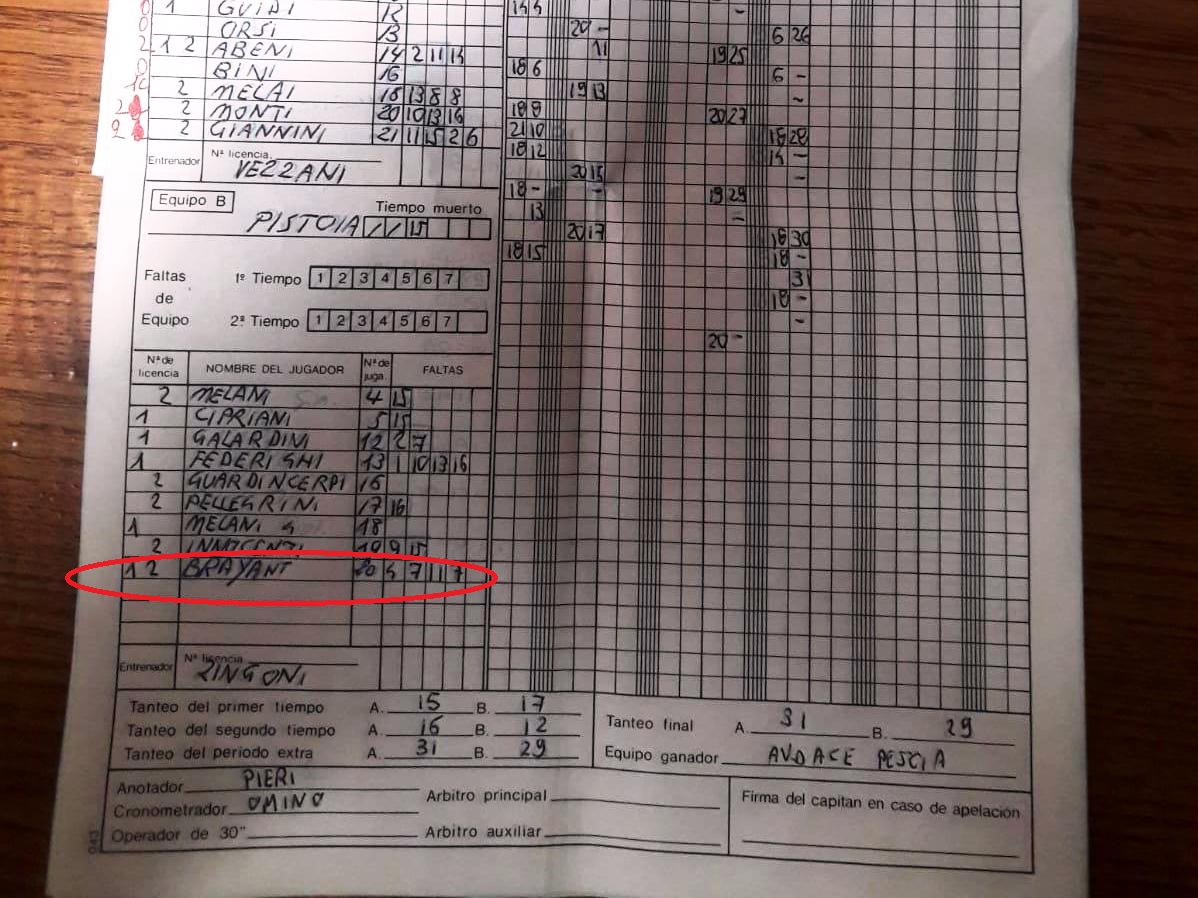 0 1 GUIDI 12
0 ORSI 13
2 1 2 ABENI 14 2 11 14
0 BINI 16
2 MELAI 18 13 8 8
2 2 MONTI 20 10 13 16
2 2 GIANNINI 21 11 15 2 6
Entrenador Nª licencia VEZZANI
Equipo B PISTOIA Tiempo muerto 15
Faltas de Equipo
1º Tiempo 1 2 3 4 5 6 7
2º Tiempo 1 2 3 4 5 6 7
Nª de licencia NOMBRE DEL JUGADOR Nª de juga. FALTAS
2 MELANI 4 15
1 CIPRIANI 5 15
1 GALARDINI 12 2 7
1 FEDERIGHI 13 1 10 13 16
2 GUARDINCERPI 16
2 PELLEGRINI 17 16
1 MELANI G 18
2 INNOCENTI 19 9 15
1 2 BRAYANT 20 5 7 11 7
Entrenador Nª licencia ZINGONI
Tanteo del primer tiempo A. 15 B. 17
Tanteo del segundo tiempo A. 16 B. 12
Tanteo del periodo extra A. 31 B. 29
Tanteo final A. 31 B. 29
Equipo ganador AUDACE PESCIA
Anotador PIERI
Cronometrador OMINO
Operador de 30"
Arbitro principal
Arbitro auxiliar
Firma del capitan en caso de apelación
20 -
11
6 26
18 6
19 25
6 -
19 13
-
18 8
20 27
21 10
18 28
18 12
14 -
20 15
-
18 -
-
19 29
13
-
20 17
18 30
18 15
18 -
31
18 -
-
20 -